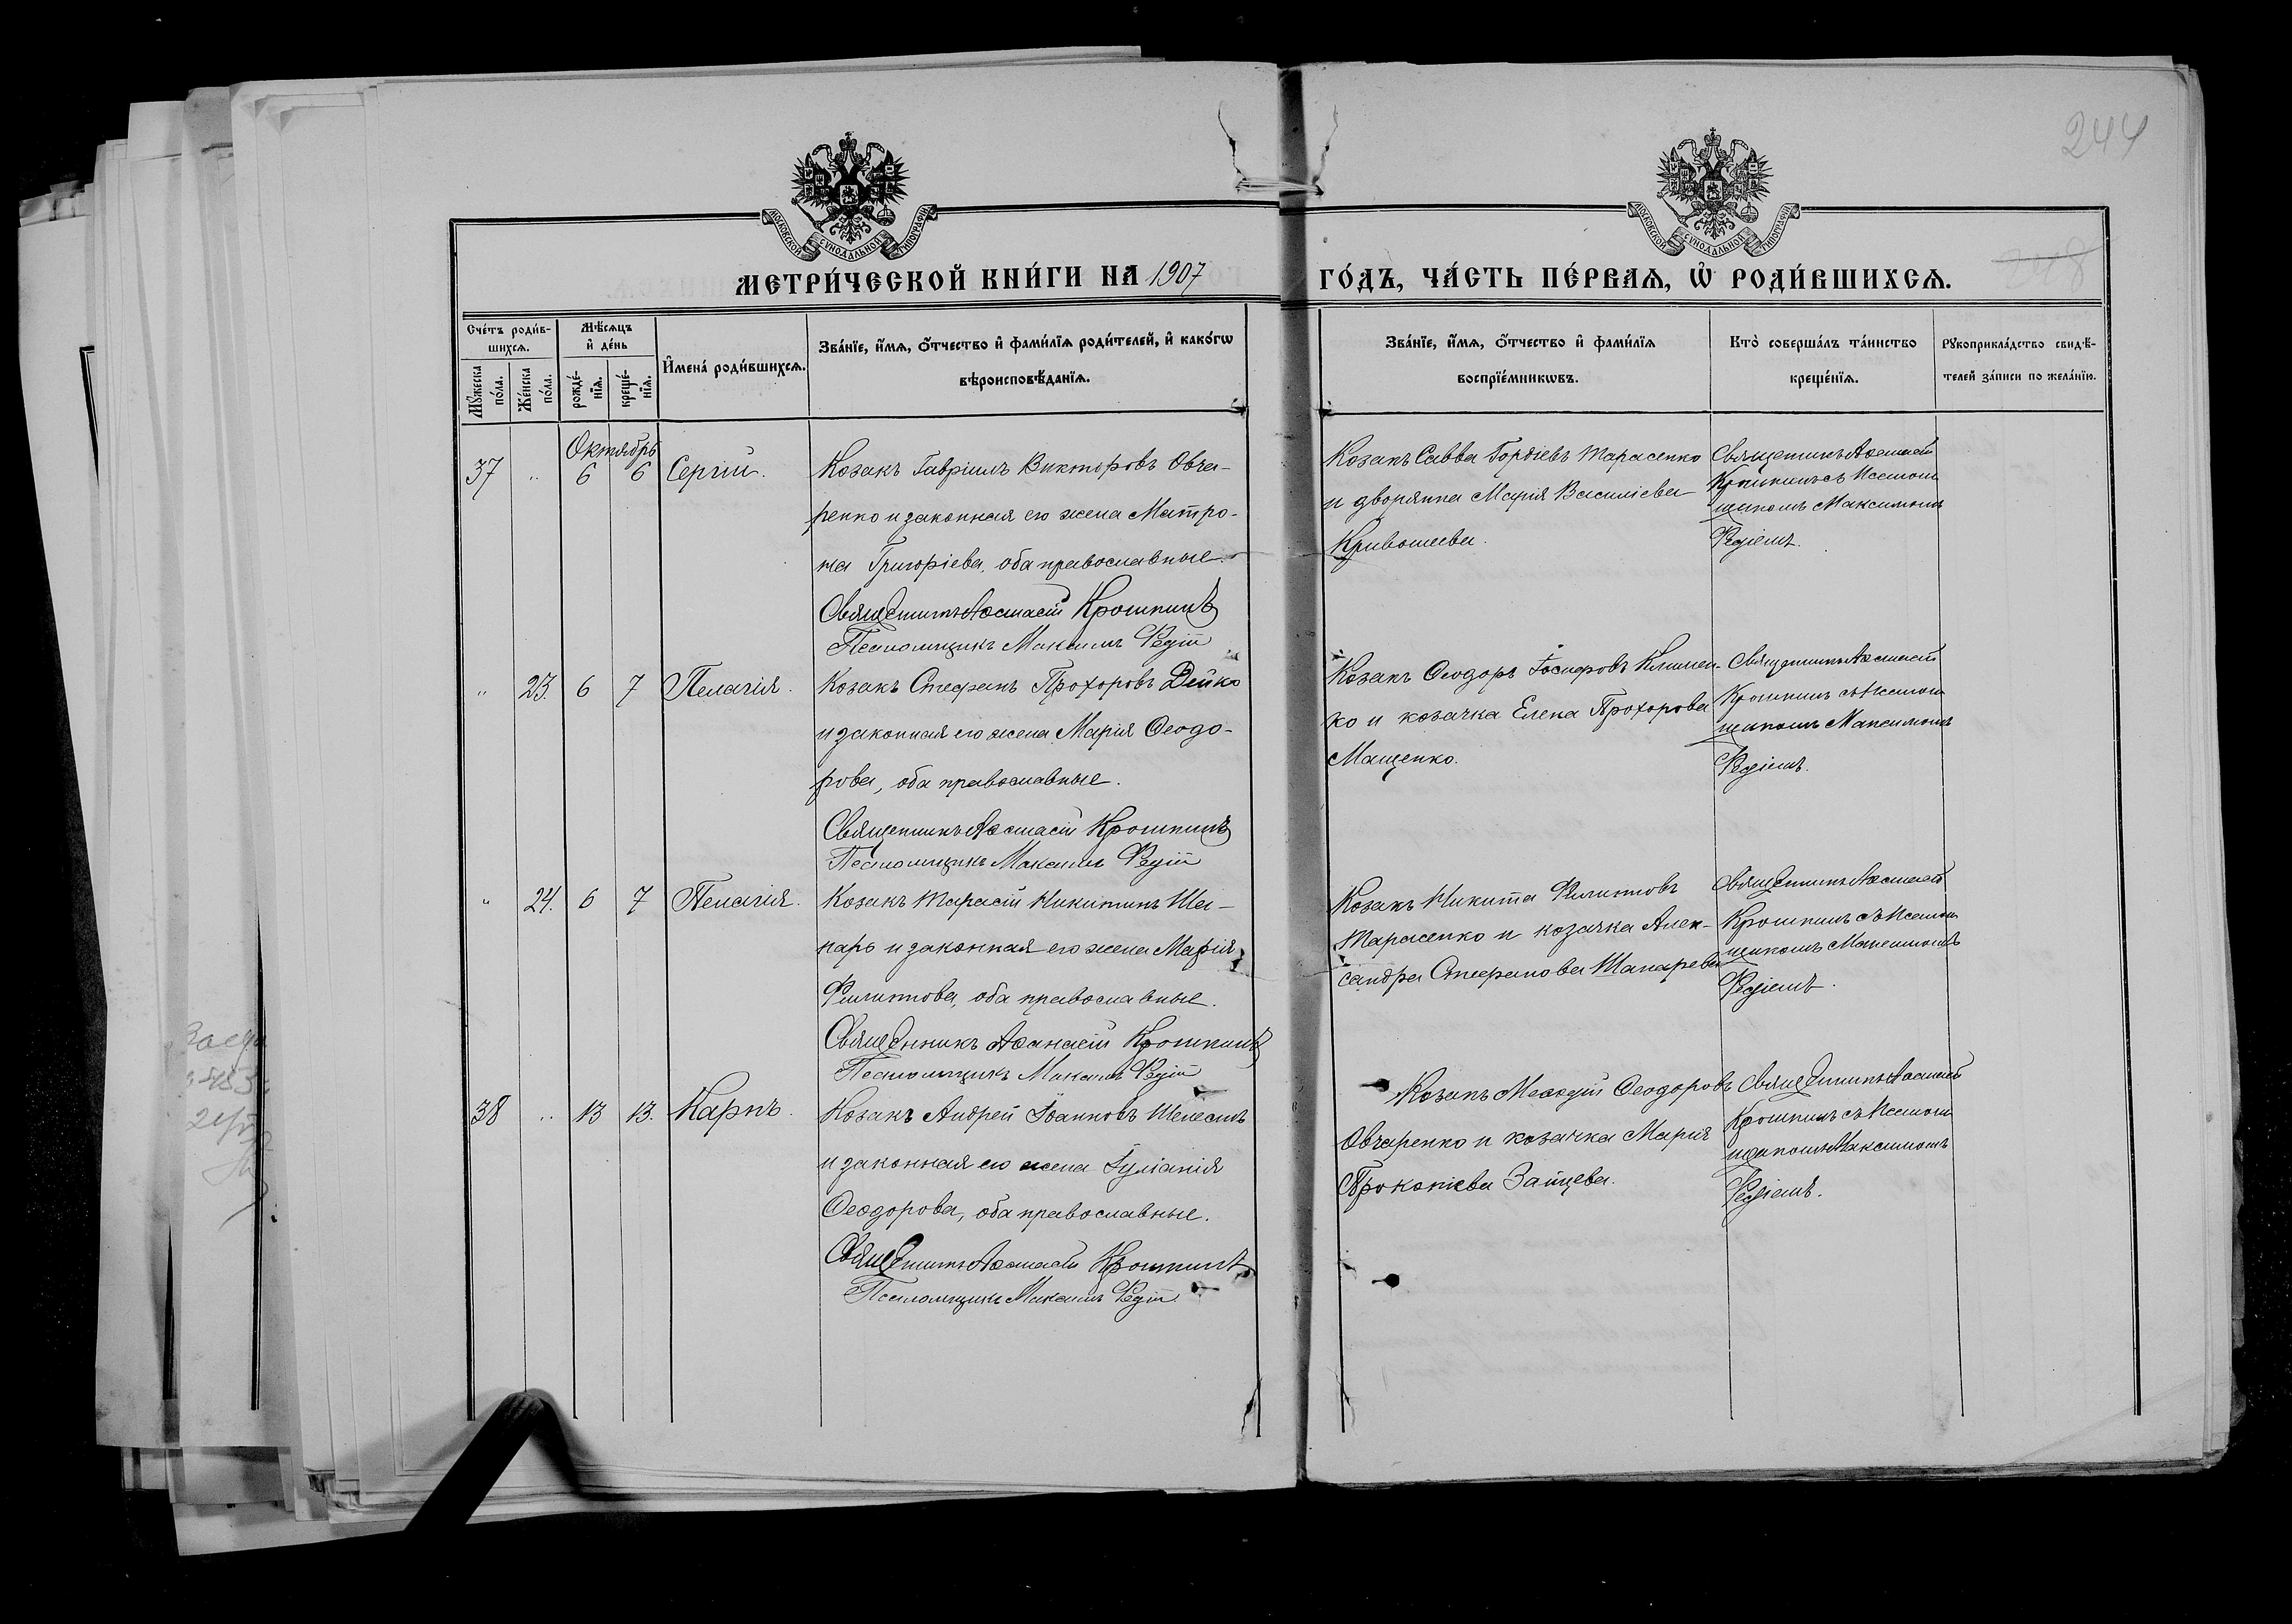 244
МОСКОВСКОЙ СѴНОДАЛЬНОЙ ТИПОГРАФІИ
МОСКОВСКОЙ СѴНОДАЛЬНОЙ ТИПОГРАФІИ
МЕТРИ́ЧЕСКОЙ КНИ́ГИ НА 1907
ГО́ДЪ, ЧА́СТЬ ПЕ́РВАѦ, Ѡ҆ РОДИ́ВШИХСѦ.
Сче́тъ роди́в-
шихсѧ.
Мꙋ́жеска по́ла.
Же́нска по́ла.
Мѣ́сѧцъ
и҆ де́нь
рожде́-
нїѧ.
креще́-
нїѧ.
И҆мена̀ роди́вшихсѧ.
Зва́нїе, и҆́мѧ, ѻ҆́тчество и҆ фами́лїѧ роди́телей, и҆ како́гѡ
вѣроисповѣ́данїѧ.
Зва́нїе, и҆́мѧ, ѻ҆́тчество и҆ фами́лїѧ
воспрїе́мникѡвъ.
Кто̀ соверша́лъ та́инство
креще́нїѧ.
Рꙋкоприкла́дство свидѣ́-
телей за́писи по жела́нїю.
Октябрь
37 " 6 6 Сергій.
Козакъ Гавріилъ Викторовъ Овча-
ренко и законная его жена Матро-
на Григоріева, оба православные.
Священникъ Аѳанасій Крошкинъ
Псаломщикъ Максимъ
Козакъ Савва Гордіевъ Тарасенко
и дворянка Марія Василіева
Кривошеева.
Священникъ Аѳанасій
Крошкинъ съ псалом
щикомъ Максимомъ
" 23. 6 7 Пелагія.
Козакъ Стефанъ Прохоровъ Дейко
и законная его жена Марія Ѳеодо-
рова, оба православные.
Священникъ Аѳанасій Крошкинъ
Псаломщикъ Максимъ
Козакъ Ѳеодоръ Іосифовъ Климен-
ко и козачка Елена Прохорова
Мащенко.
Священникъ Аѳанасій
Крошкинъ съ псалом
щикомъ Максимомъ
" 24. 6 7 Пелагія.
Козакъ Тарасій Никитинъ Ша-
парь и законная его жена Марія
Филиппова, оба православные.
Священникъ Аѳанасій Крошкинъ
Псаломщикъ Максимъ
Козакъ Никита Филипповъ
Тарасенко и козачка Алек-
сандра Стефанова Шапарева
Священникъ Аѳанасій
Крошкинъ съ псалом
щикомъ Максимомъ
38 " 13 13. Карпъ.
Козакъ Андрей Іоанновъ Шелестъ
и законная его жена Іуліанія
Ѳеодорова, оба православные.
Священникъ Аѳанасій Крошкинъ
Псаломщикъ Максимъ
Козакъ Меѳодій Ѳеодоровъ
Овчаренко и козачка Марія
Прокопіева Зайцева.
Священникъ Аѳанасій
Крошкинъ съ псалом
щикомъ Максимомъ